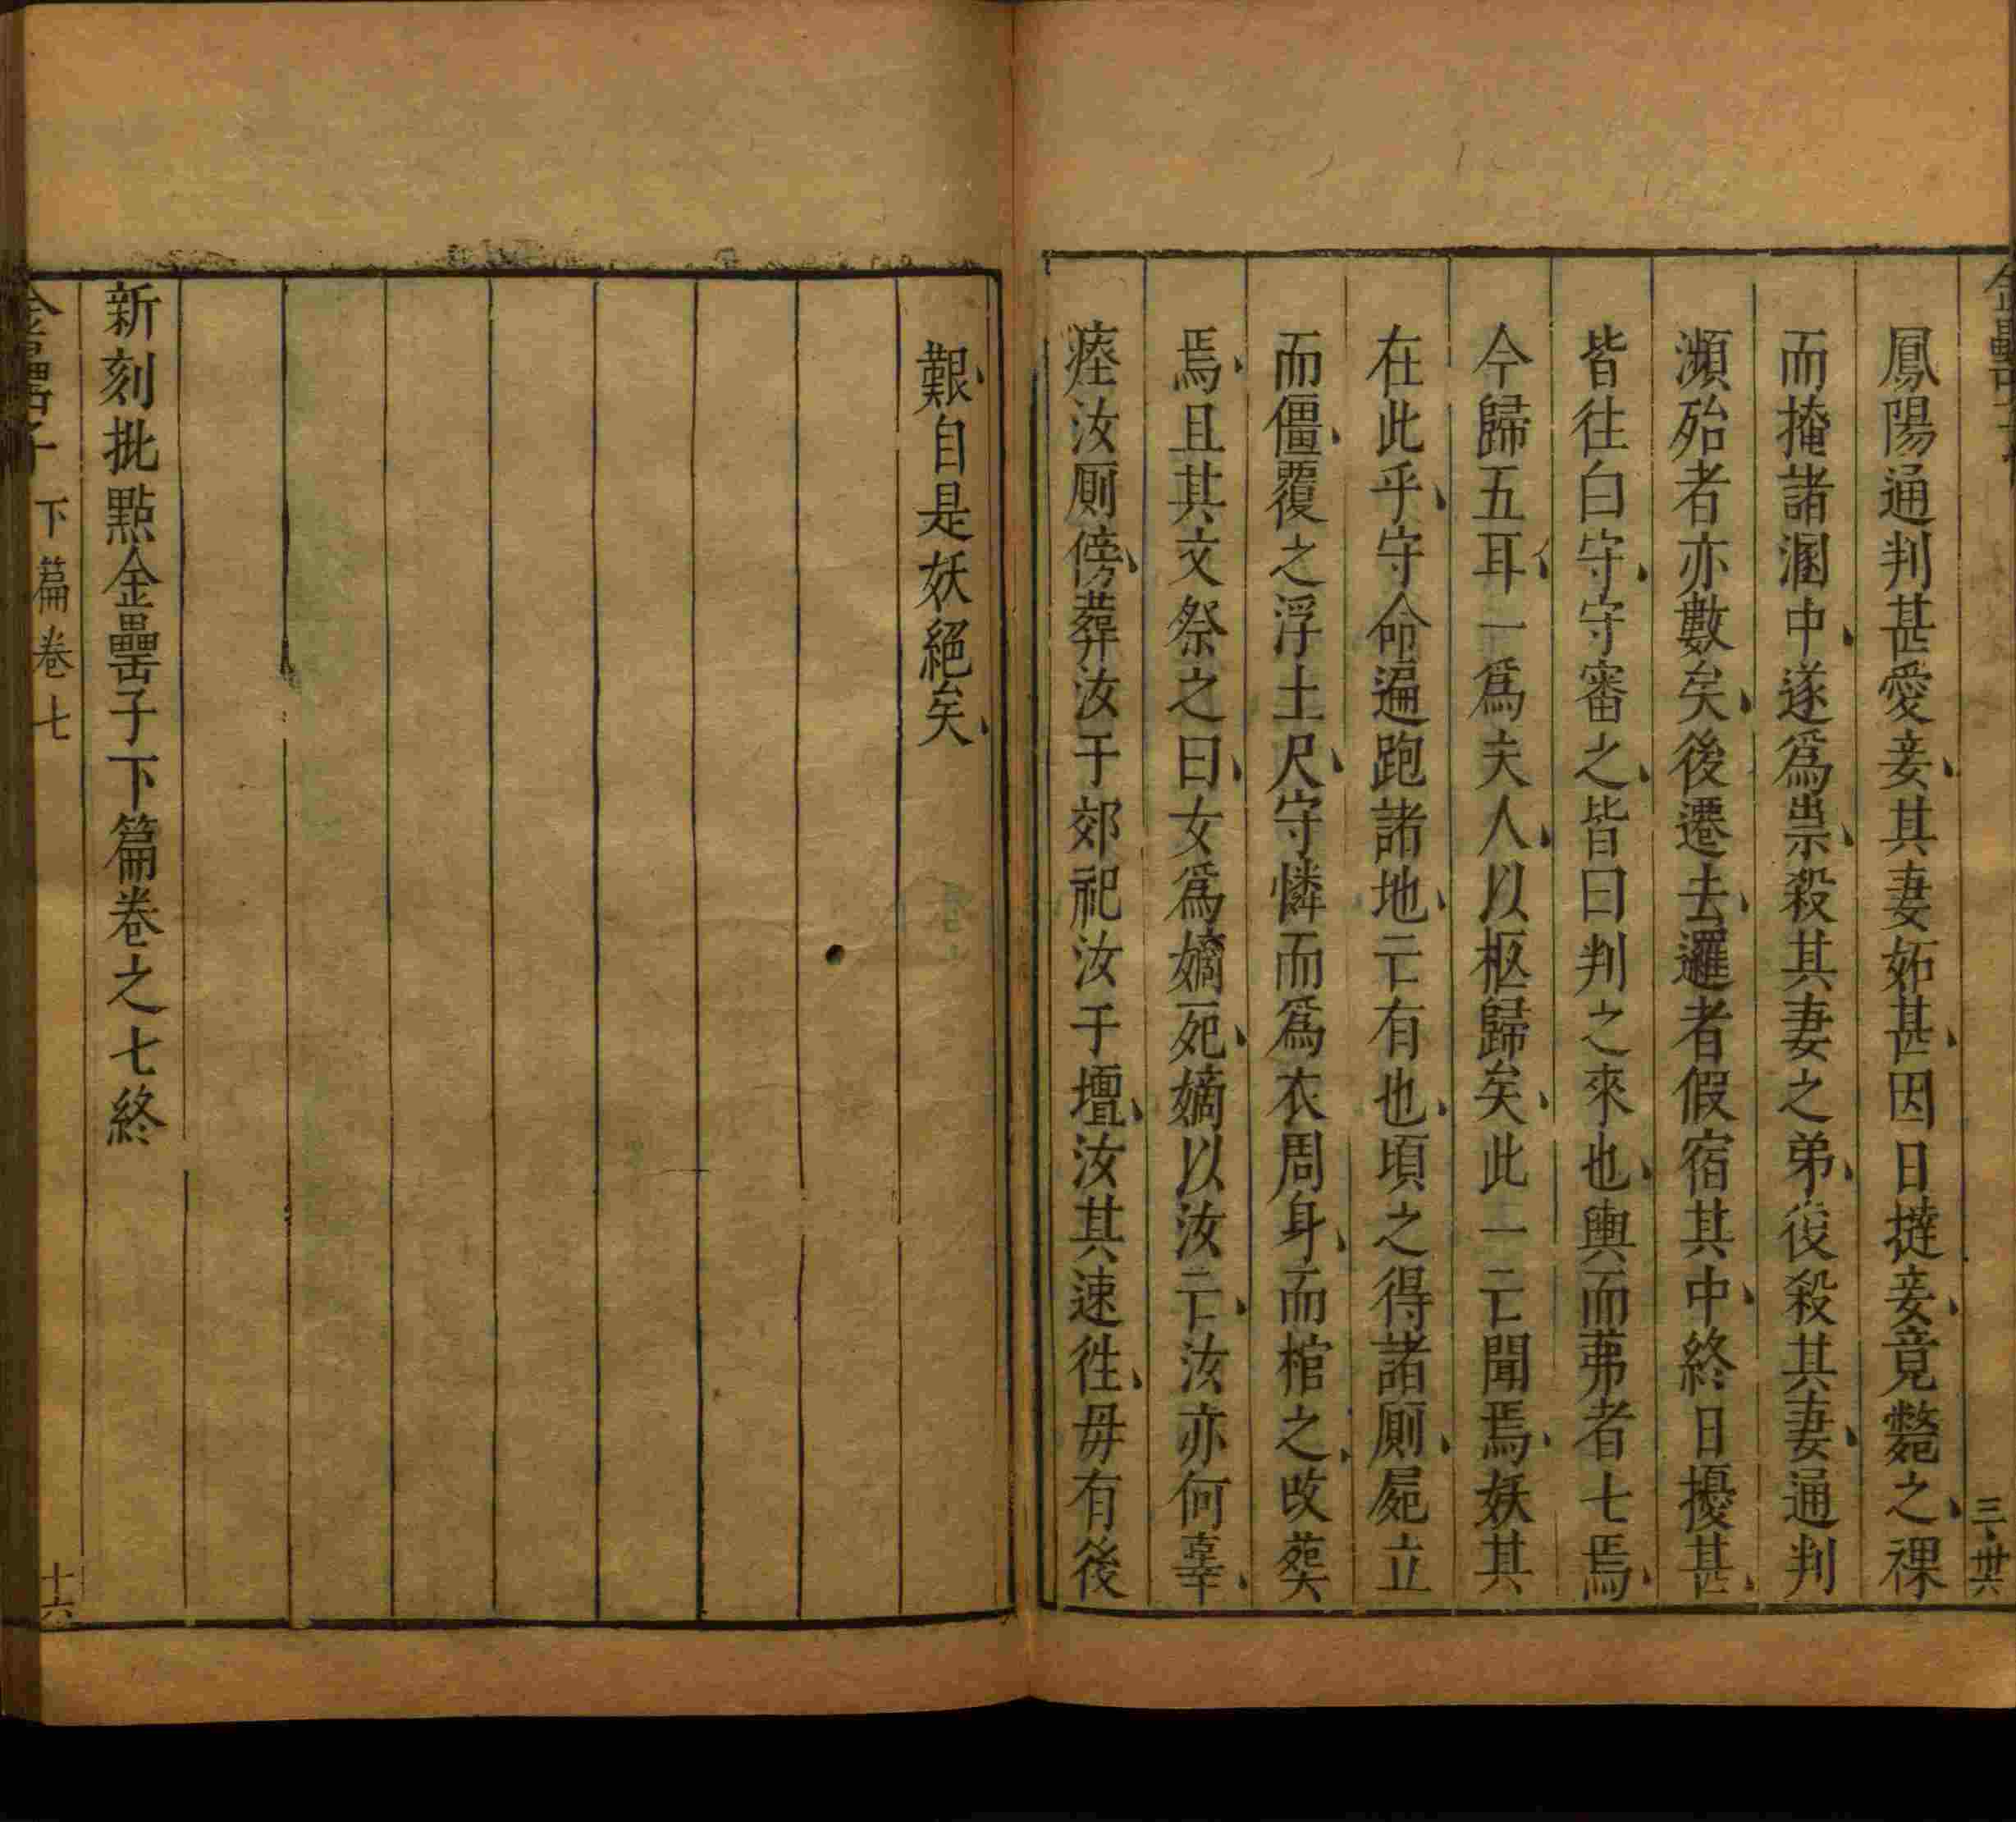 鳳陽通判甚愛妾其妻妬甚因日撻妾竟斃之祼
而掩諸溷中遂爲祟殺其妻之弟復殺其妻通判
瀕殆者亦數矣後遷去邏者假宿其中終日擾甚
皆往白守守審之皆曰判之來也輿而茀者七焉
今歸五耳一爲夫人以柩歸矣此一亡聞焉妖其
在此乎守命遍跑諸地亡有也頃之得諸厠屍立
而僵覆之浮土尺守憐而爲衣周身而棺之改葬
焉且其文祭之曰女爲嫡死嫡以汝亡汝亦何辜
瘞汝厠傍葬汝于郊祀汝于壇汝其速徃毋有後
艱自是妖絕矣
新刻批點金罍子下篇卷之七終
金罍子 下篇卷七 十六